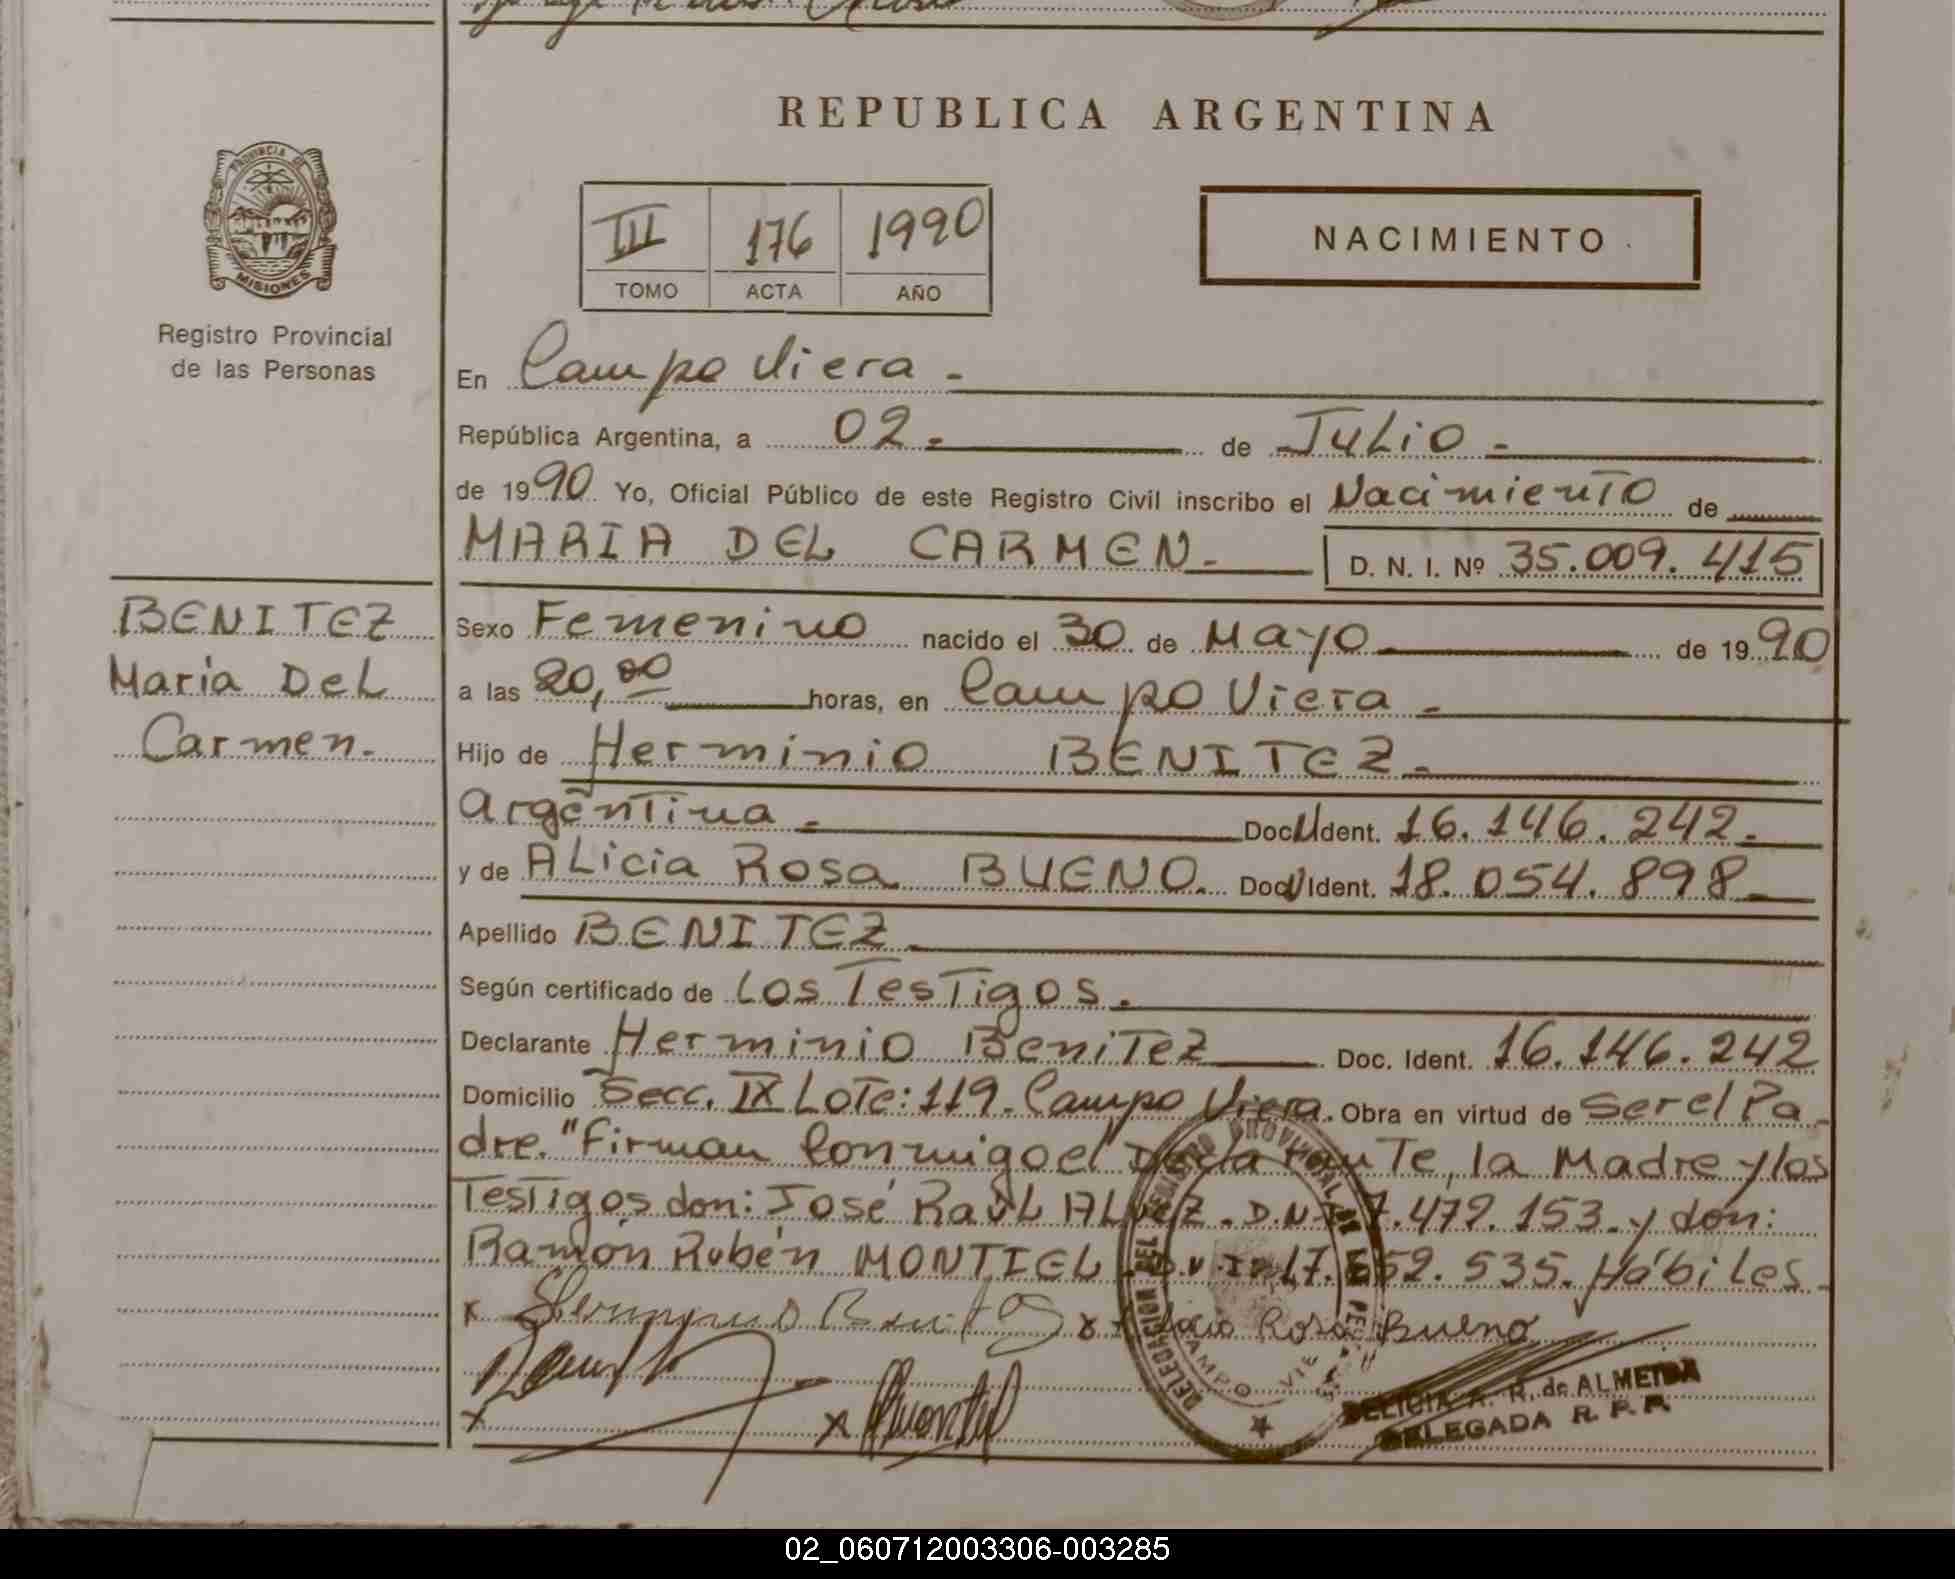 REPUBLICA ARGENTINA
PROVINCIA DE
MISIONES
Registro Provincial
de las Personas
III 176 1990
TOMO ACTA AÑO
NACIMIENTO
En Campo Viera -
República Argentina, a 02 - de Julio -
de 1990 Yo, Oficial Público de este Registro Civil inscribo el Nacimiento de
MARIA DEL CARMEN - D. N. I. Nº 35.009.415
BENITEZ
Maria Del
Carmen.
Sexo Femenino nacido el 30 de Mayo de 1990
a las 20,00 horas, en Campo Viera -
Hijo de Herminio BENITEZ -
Argentina - Doc. Ident. 16.146.242 -
y de Alicia Rosa BUENO. Doc. Ident. 18.054.898 -
Apellido BENITEZ -
Según certificado de Los Testigos.
Declarante Herminio Benitez Doc. Ident. 16.146.242
Domicilio Secc. IX Lote: 119. Campo Viera. Obra en virtud de Ser el Pa-
dre. "Firman Conmigo el Declarante, la Madre y los
Testigos don: José Raúl AL D.N.I. 7.479.153. y don:
Ramón Rubén MONTIEL 535. Hábiles.
x Herminio Benitez x Alicia Rosa Bueno
x x
DELEGACION DEL REGISTRO PROVINCIAL DE LAS PER
CAMPO VIE
DELICIA A. R. de ALMEIDA
DELEGADA R. P. P.
02_060712003306-003285